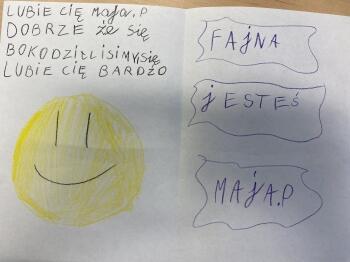 LUBIE CIĘ Maja.P
DOBRZE że SIĘ
BOKODZILISIMYSIĘ
LUBIE CIĘ BARDZO
FAjNA
jESTEŚ
MAjA.P